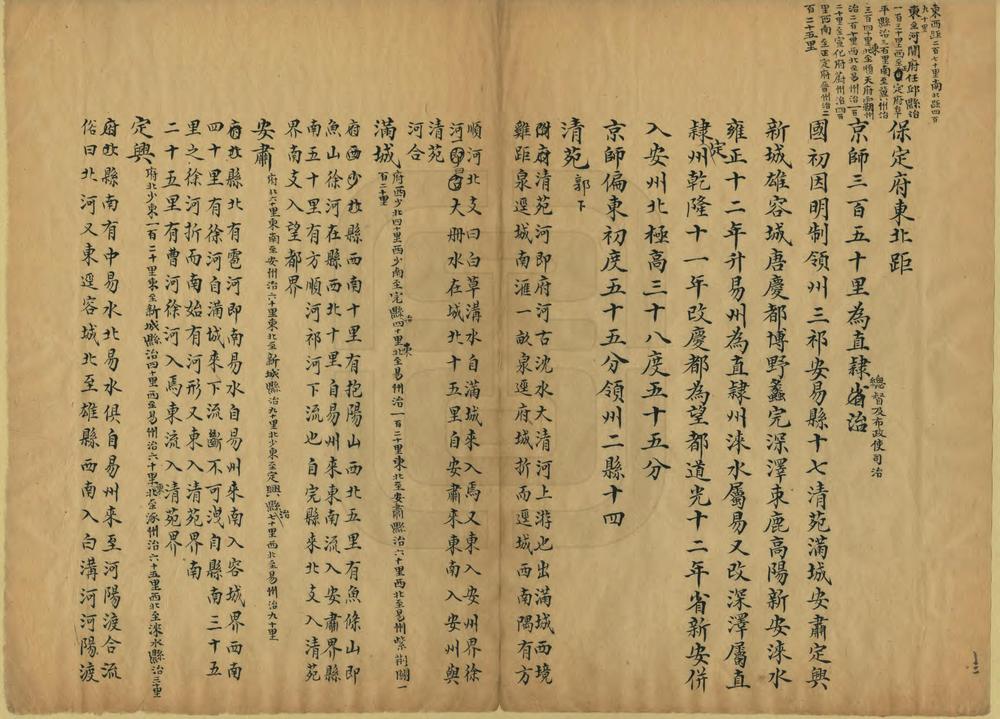 東西距二百七十里南北距四百
九十里
東至河間府任邱縣治
一百三十里西至正定府阜
平縣治三百里南至冀州治
三百四十里東北至順天府霸州
治二百十里西北至易州治一百
二十里至宣化府蔚州治四百
里西南至正定府晉州治
百二十五里
保定府東北距
京師三百五十里為直隸省治總督及布政使司治
國初因明制領州三祁安易縣十七清苑滿城安肅定興
新城雄容城唐慶都博野蠡完深澤束鹿高陽新安淶水
雍正十二年升易州為直隸州淶水屬易又改深澤屬直
隸定州乾隆十一年改慶都為望都道光十二年省新安併
入安州北極高三十八度五十五分
京師偏東初度五十五分領州二縣十四
清苑郭下
附府清苑河即府河古沈水大清河上游也出滿城西境
雞距泉逕城南滙一畝泉逕府城折而逕城西南隅有方
順河北支曰白草溝水自滿城來入焉又東入安州界徐
河大冊水在城北十五里自安肅來東南入安州與
清苑
河合
滿城府西少北四十里西少南至完縣治四十里東北至易州治一百二十里東北至安肅縣治六十里西北至易州紫荊關一
百二十里
府西少北縣西南十里有抱陽山西北五里有魚條山即
魚山徐河在縣西北十里自易州來東南流入安肅界縣
南五十里有方順河祁河下流也自完縣來北支入清苑
界南支入望都界
安肅府北六十里東南至安州治六十里東北至新城縣治九十里北少東至定興縣治七十里西北至易州治九十里
府北縣北有雹河即南易水自易州來南入容城界西南
四十里有徐河自滿城來下流斷不可洩自縣南三十五
里之徐河折而南始有河形又東入清苑界南
二十五里有曹河徐河入焉東流入清苑界
定興府北少東一百二十里東至新城縣治四十里西至易州治六十里東北至涿州治六十五里西北至淶水縣治三十里
府北縣南有中易水北易水俱自易州來至河陽渡合流
俗曰北河又東逕容城北至雄縣西南入白溝河河陽渡